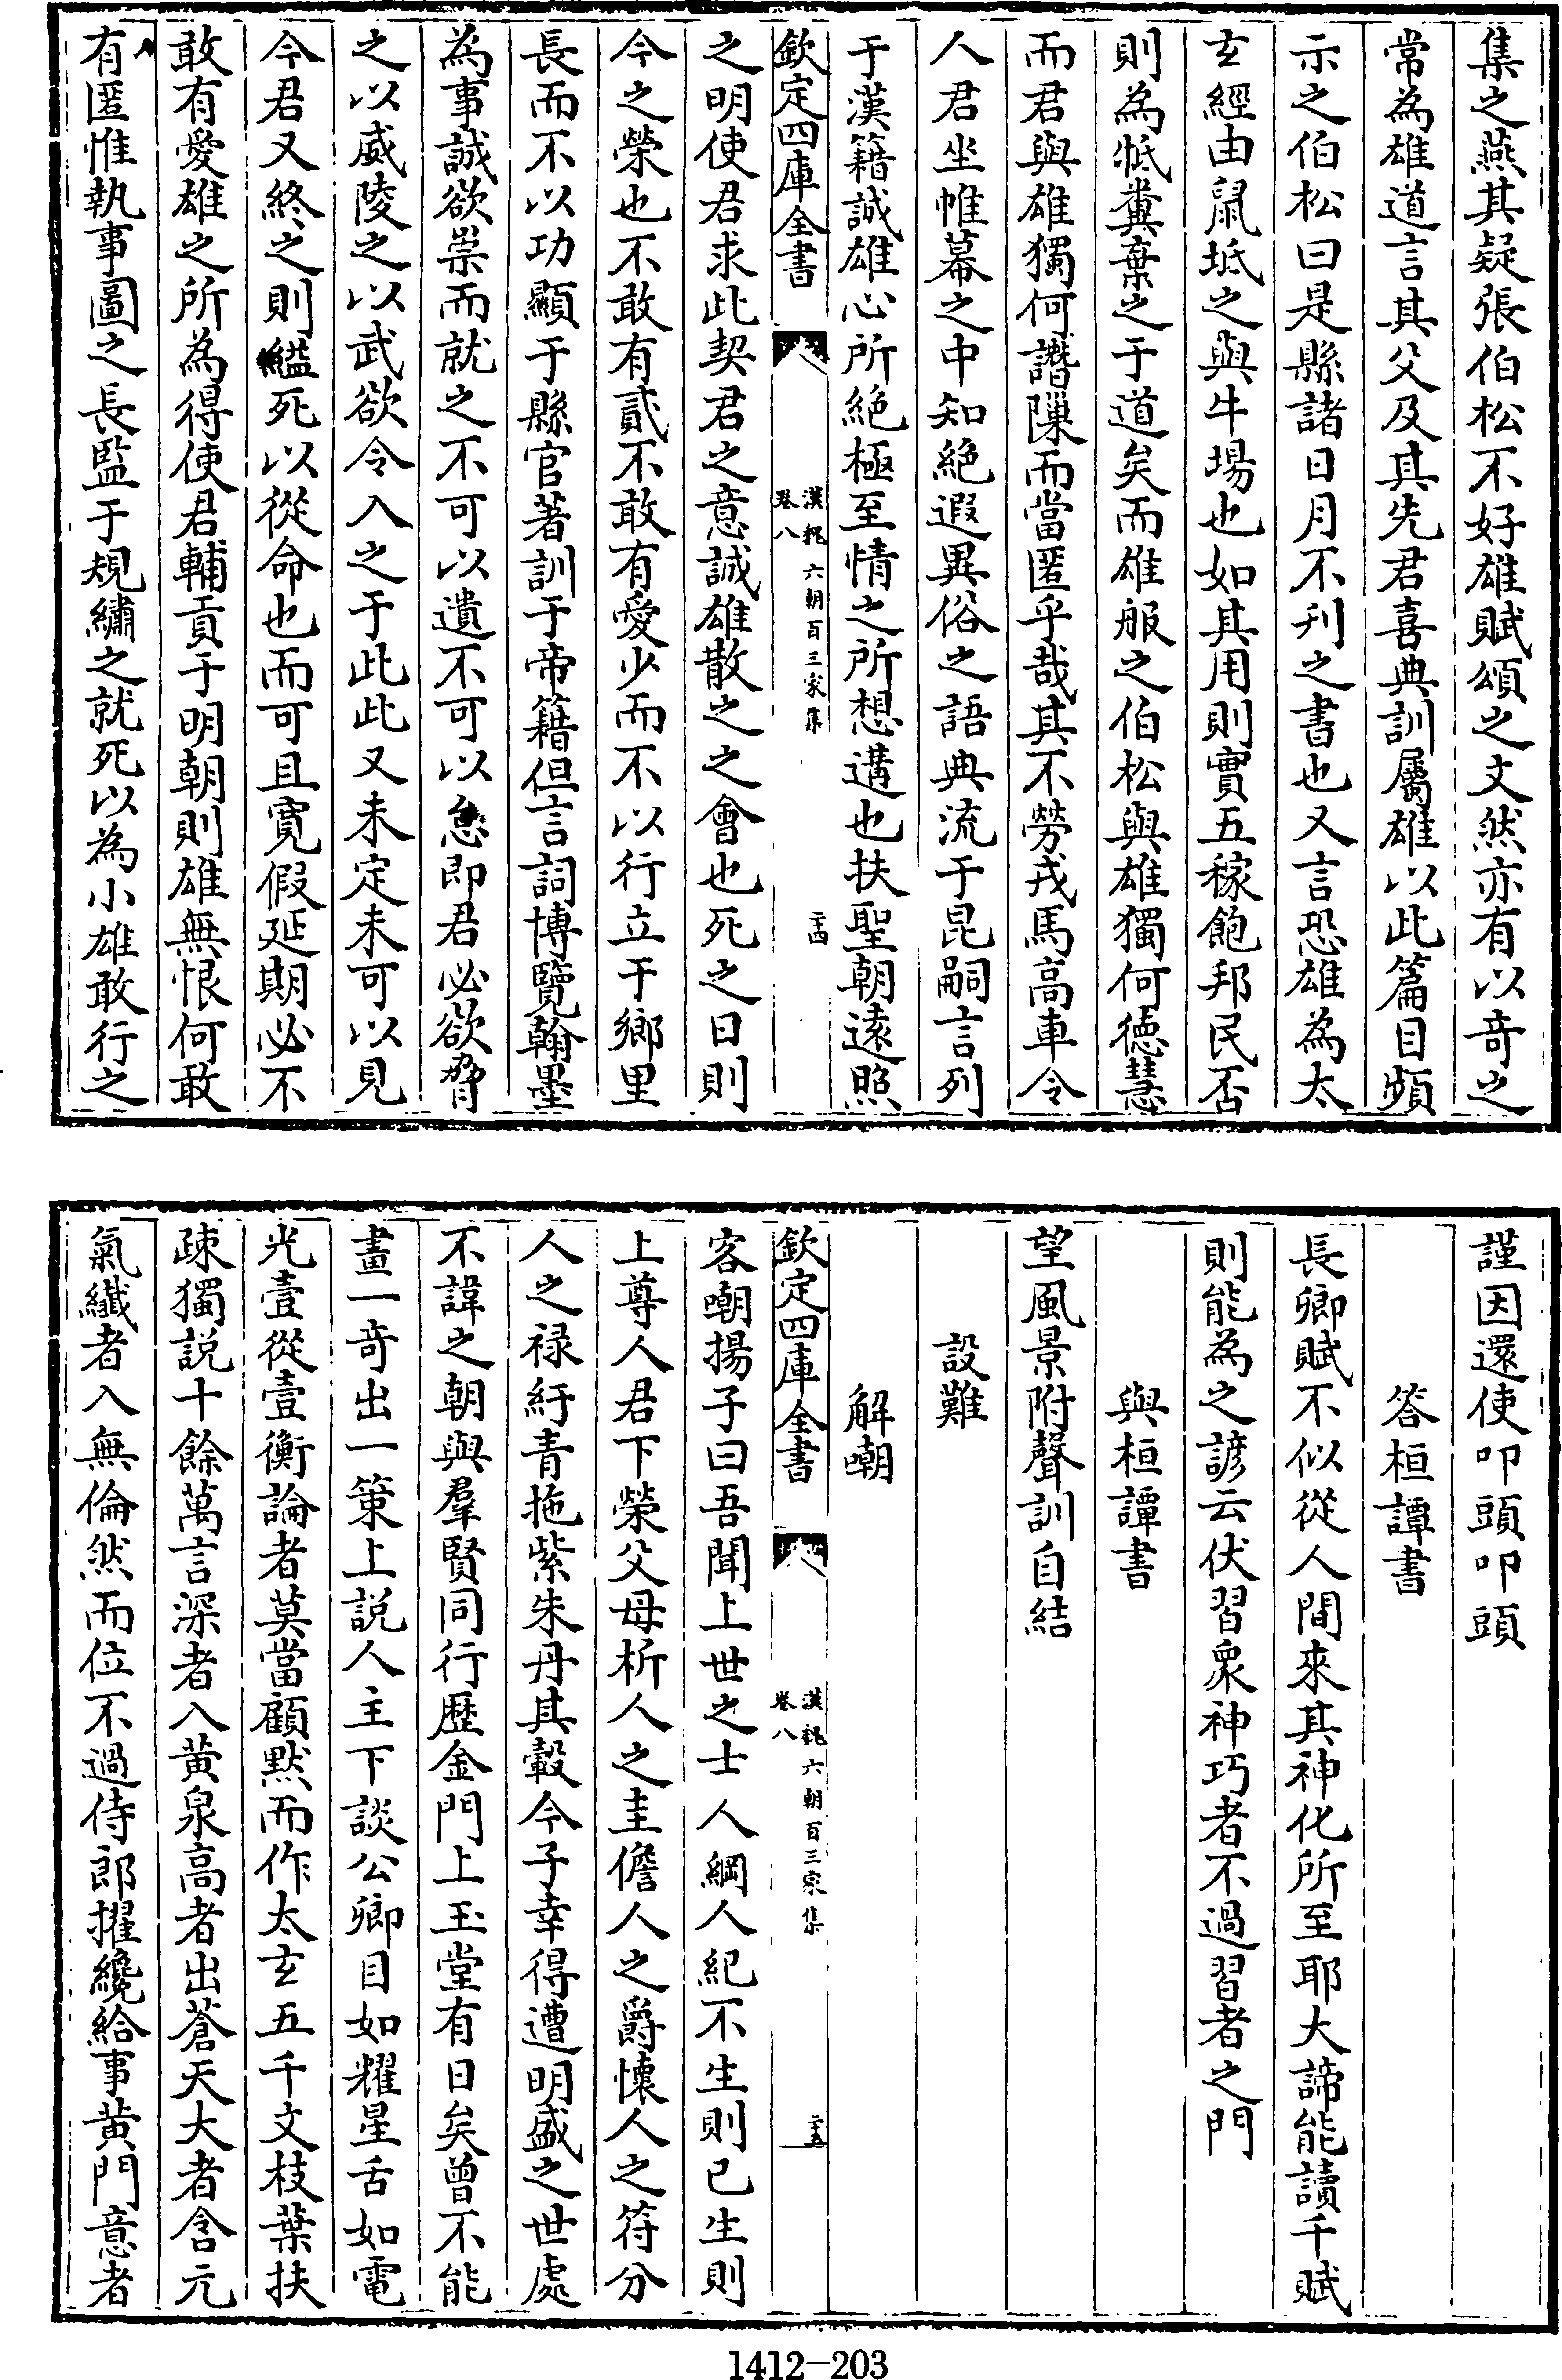 集之燕其疑張伯松不好雄賦頌之文然亦有以奇之
常為雄道言其父及其先君喜典訓屬雄以此篇目頻
示之伯松曰是縣諸日月不刋之書也又言恐雄為太
玄經由䑕坻之與牛場也如其用則實五稼飽邦民否
則為牴糞棄之于道矣而雄服之伯松與雄獨何徳慧
而君與雄獨何譖隟而當匿乎哉其不勞戎馬髙車令
人君坐帷幕之中知絶遐異俗之語典流于昆嗣言列
于漢籍誠雄心所絶極至情之所想遘也扶聖朝逺照
欽定四庫全書
漢魏六朝百三家集
卷八
二十四
之明使君求此契君之意誠雄散之之會也死之日則
今之榮也不敢有貳不敢有愛少而不以行立于鄉里
長而不以功顯于縣官著訓于帝籍但言詞博覽翰墨
為事誠欲崇而就之不可以遺不可以怠即君必欲脅
之以威陵之以武欲令入之于此此又未定未可以見
今君又終之則縊死以從命也而可且寛假延期必不
敢有愛雄之所為得使君輔貢于明朝則雄無恨何敢
有匿惟執事圖之長監于規繡之就死以為小雄敢行之
謹因還使叩頭叩頭
答桓譚書
長卿賦不似從人間來其神化所至耶大諦能讀千賦
則能為之諺云伏習衆神巧者不過習者之門
與桓譚書
望風景附聲訓自結
設難
解嘲
欽定四庫全書
漢魏六朝百三家集
卷八
二十五
客嘲揚子曰吾聞上世之士人綱人紀不生則已生則
上尊人君下榮父母析人之圭儋人之爵懐人之符分
人之禄紆青拖紫朱丹其轂今子幸得遭明盛之世處
不諱之朝與羣賢同行歴金門上玉堂有日矣曽不能
畫一竒出一策上説人主下談公卿目如耀星舌如電
光壹從壹衡論者莫當顧黙而作太玄五千文枝葉扶
疎獨説十餘萬言深者入黄泉髙者出蒼天大者含元
氣纎者入無倫然而位不過侍郎擢纔給事黄門意者
1412—203